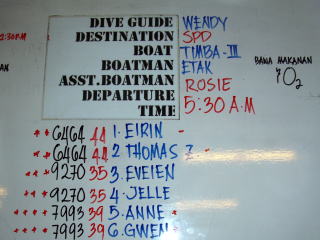 DIVE GUIDE WENDY
DESTINATION SPD
BOAT TIMBA-III
BOATMAN ETAK
ASST.BOATMAN ROSIE
DEPARTURE TIME 5:30 A.M
BAWA MAKANAN
O2
2:30PM
** 6464 44 1. EIRIN -
* 6464 44 2 THOMAS Z. -
** 9270 35 3. EVEIEN
**** 9270 35 4. JELLE
**** 7993 39 5. ANNE *
**** 7993 39 6. GWEN *